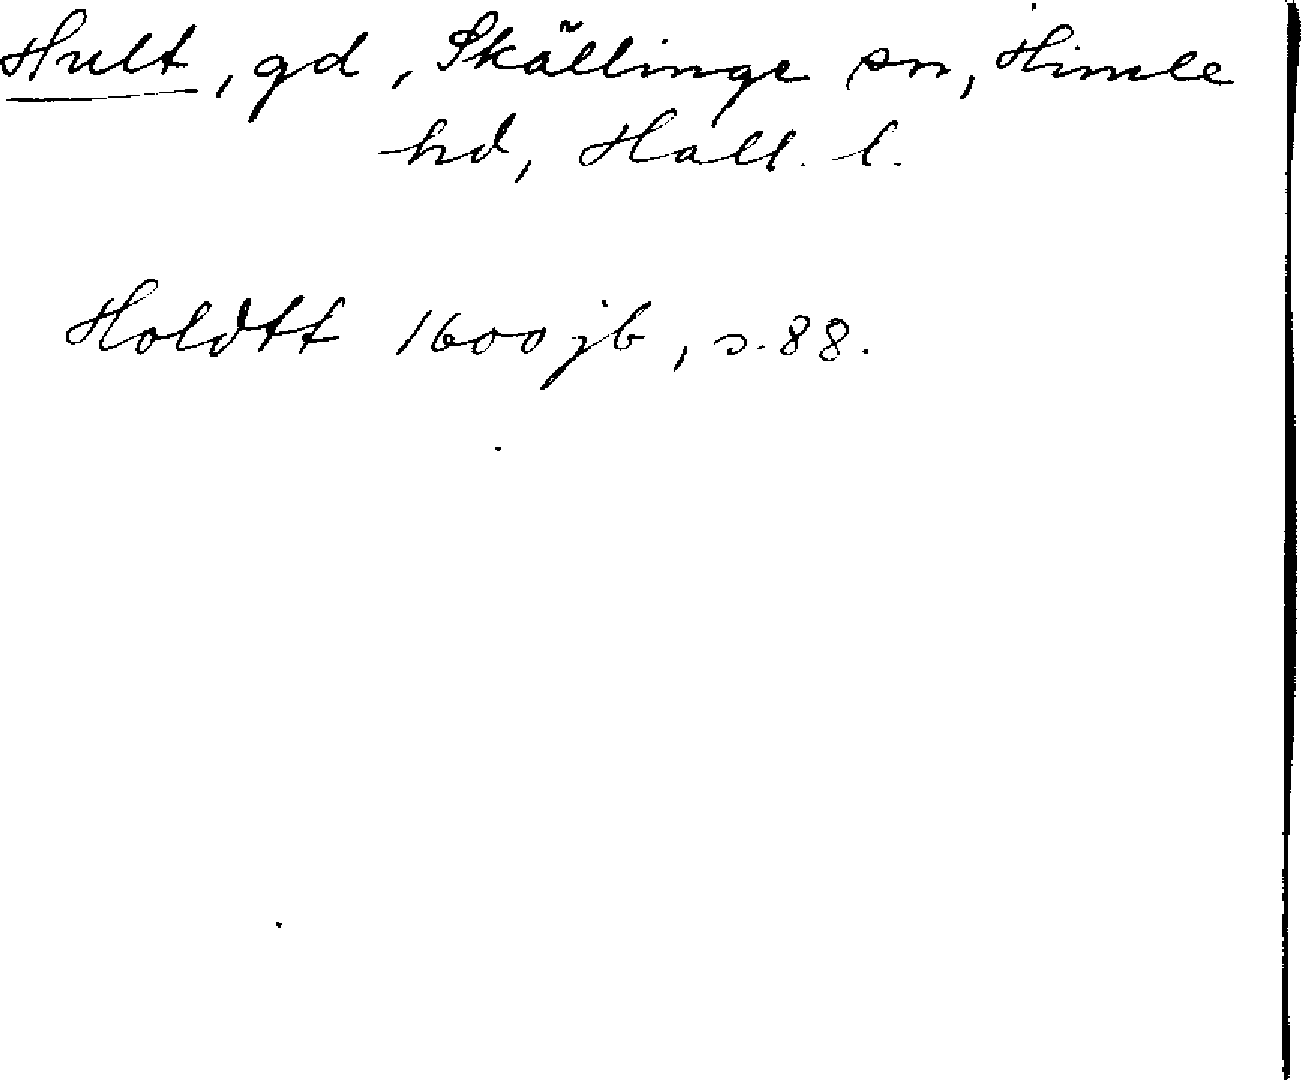 Hult, gd, Skällinge sn, Himle
hd, Hall. l.
Holdtt 1600 jb, s. 88.